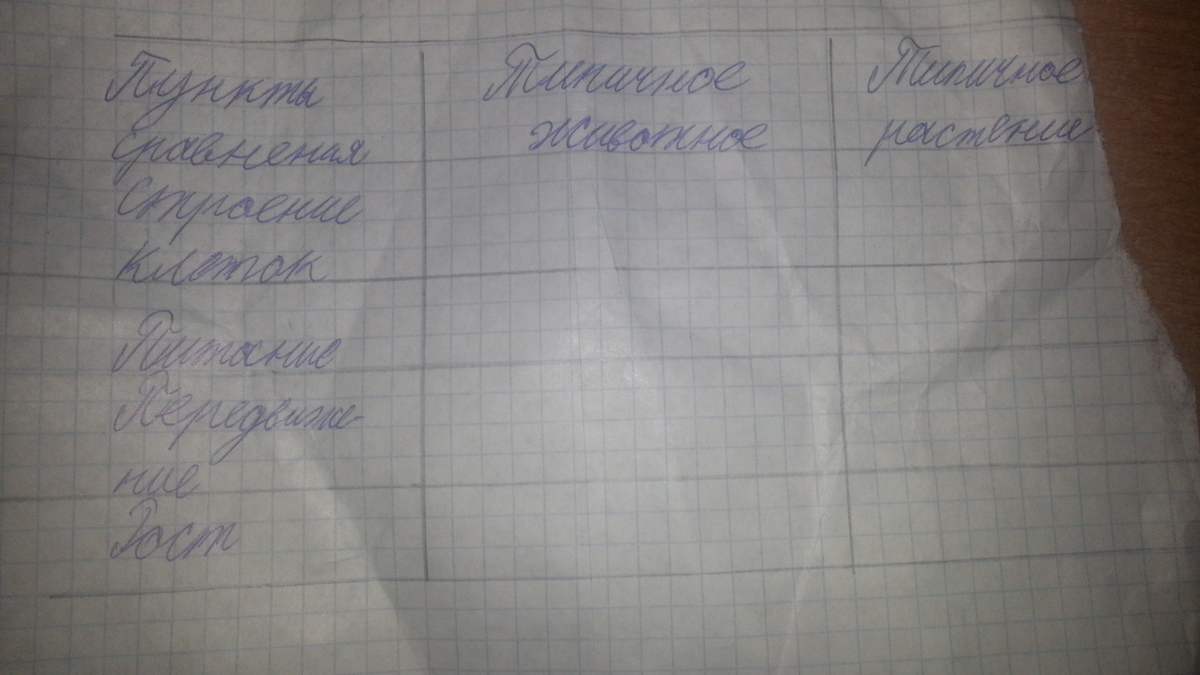 Пункты
сравнения
Типичное
животное
Типичное
растение
Строение
клеток
Питание
Передвиже-
ние
Рост